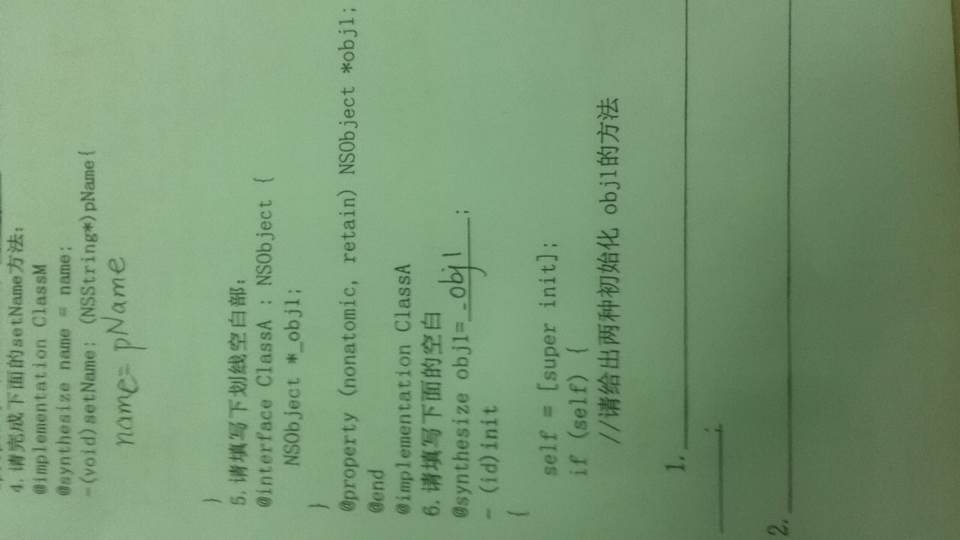 4. 请完成下面的setName方法:
@implementation ClassM
@synthesize name = name;
-(void)setName: (NSString*)pName{
name= pName
}
5. 请填写下划线空白部:
@interface ClassA : NSObject {
NSObject *_obj1;
}
@property (nonatomic, retain) NSObject *obj1;
@end
@implementation ClassA
6. 请填写下面的空白
@synthesize obj1=_obj1;
- (id)init
{
self = [super init];
if (self) {
//请给出两种初始化 obj1的方法
1.
;
2.